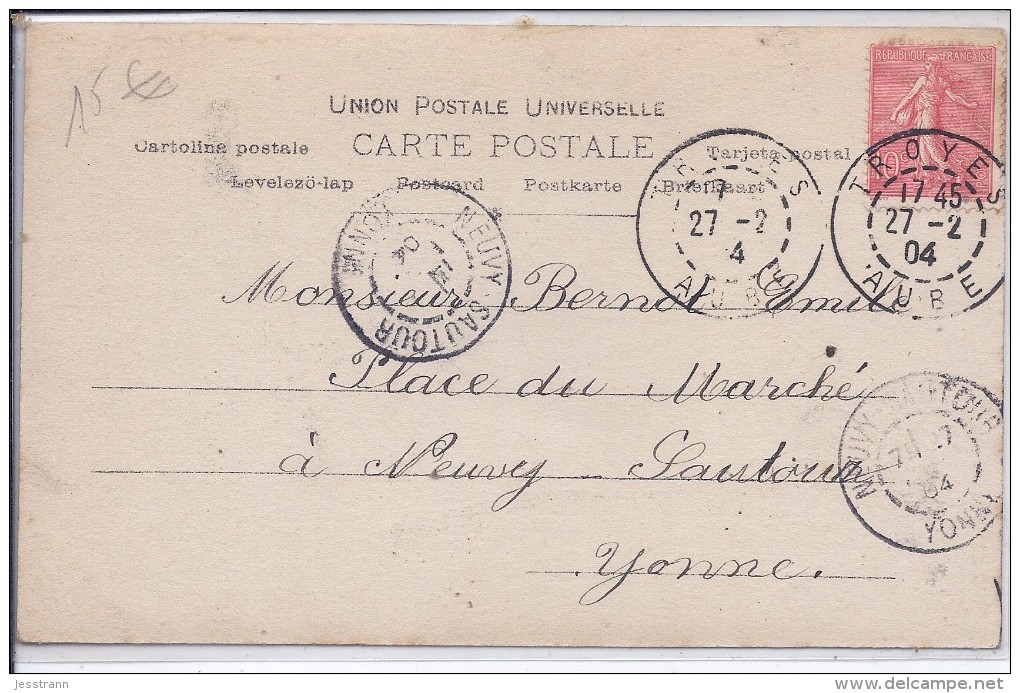 15 €
UNION POSTALE UNIVERSELLE
CARTE POSTALE
Cartolina postale
Tarjeta postal
Levelezö-lap Postcard Postkarte Briefkaart
REPUBLIQUE FRANÇAISE
TROYES
17 45
27 -2
04
AUBE
TROYES
27 -2
AUBE
NEUVY-SAUTOUR
04
YONNE
Monsieur Bernot Emile
Place du Marché
à Neuvy Sautour
Yonne.
NEUVY SAUTOUR
04
YONNE
jesstrann
www.delcampe.net